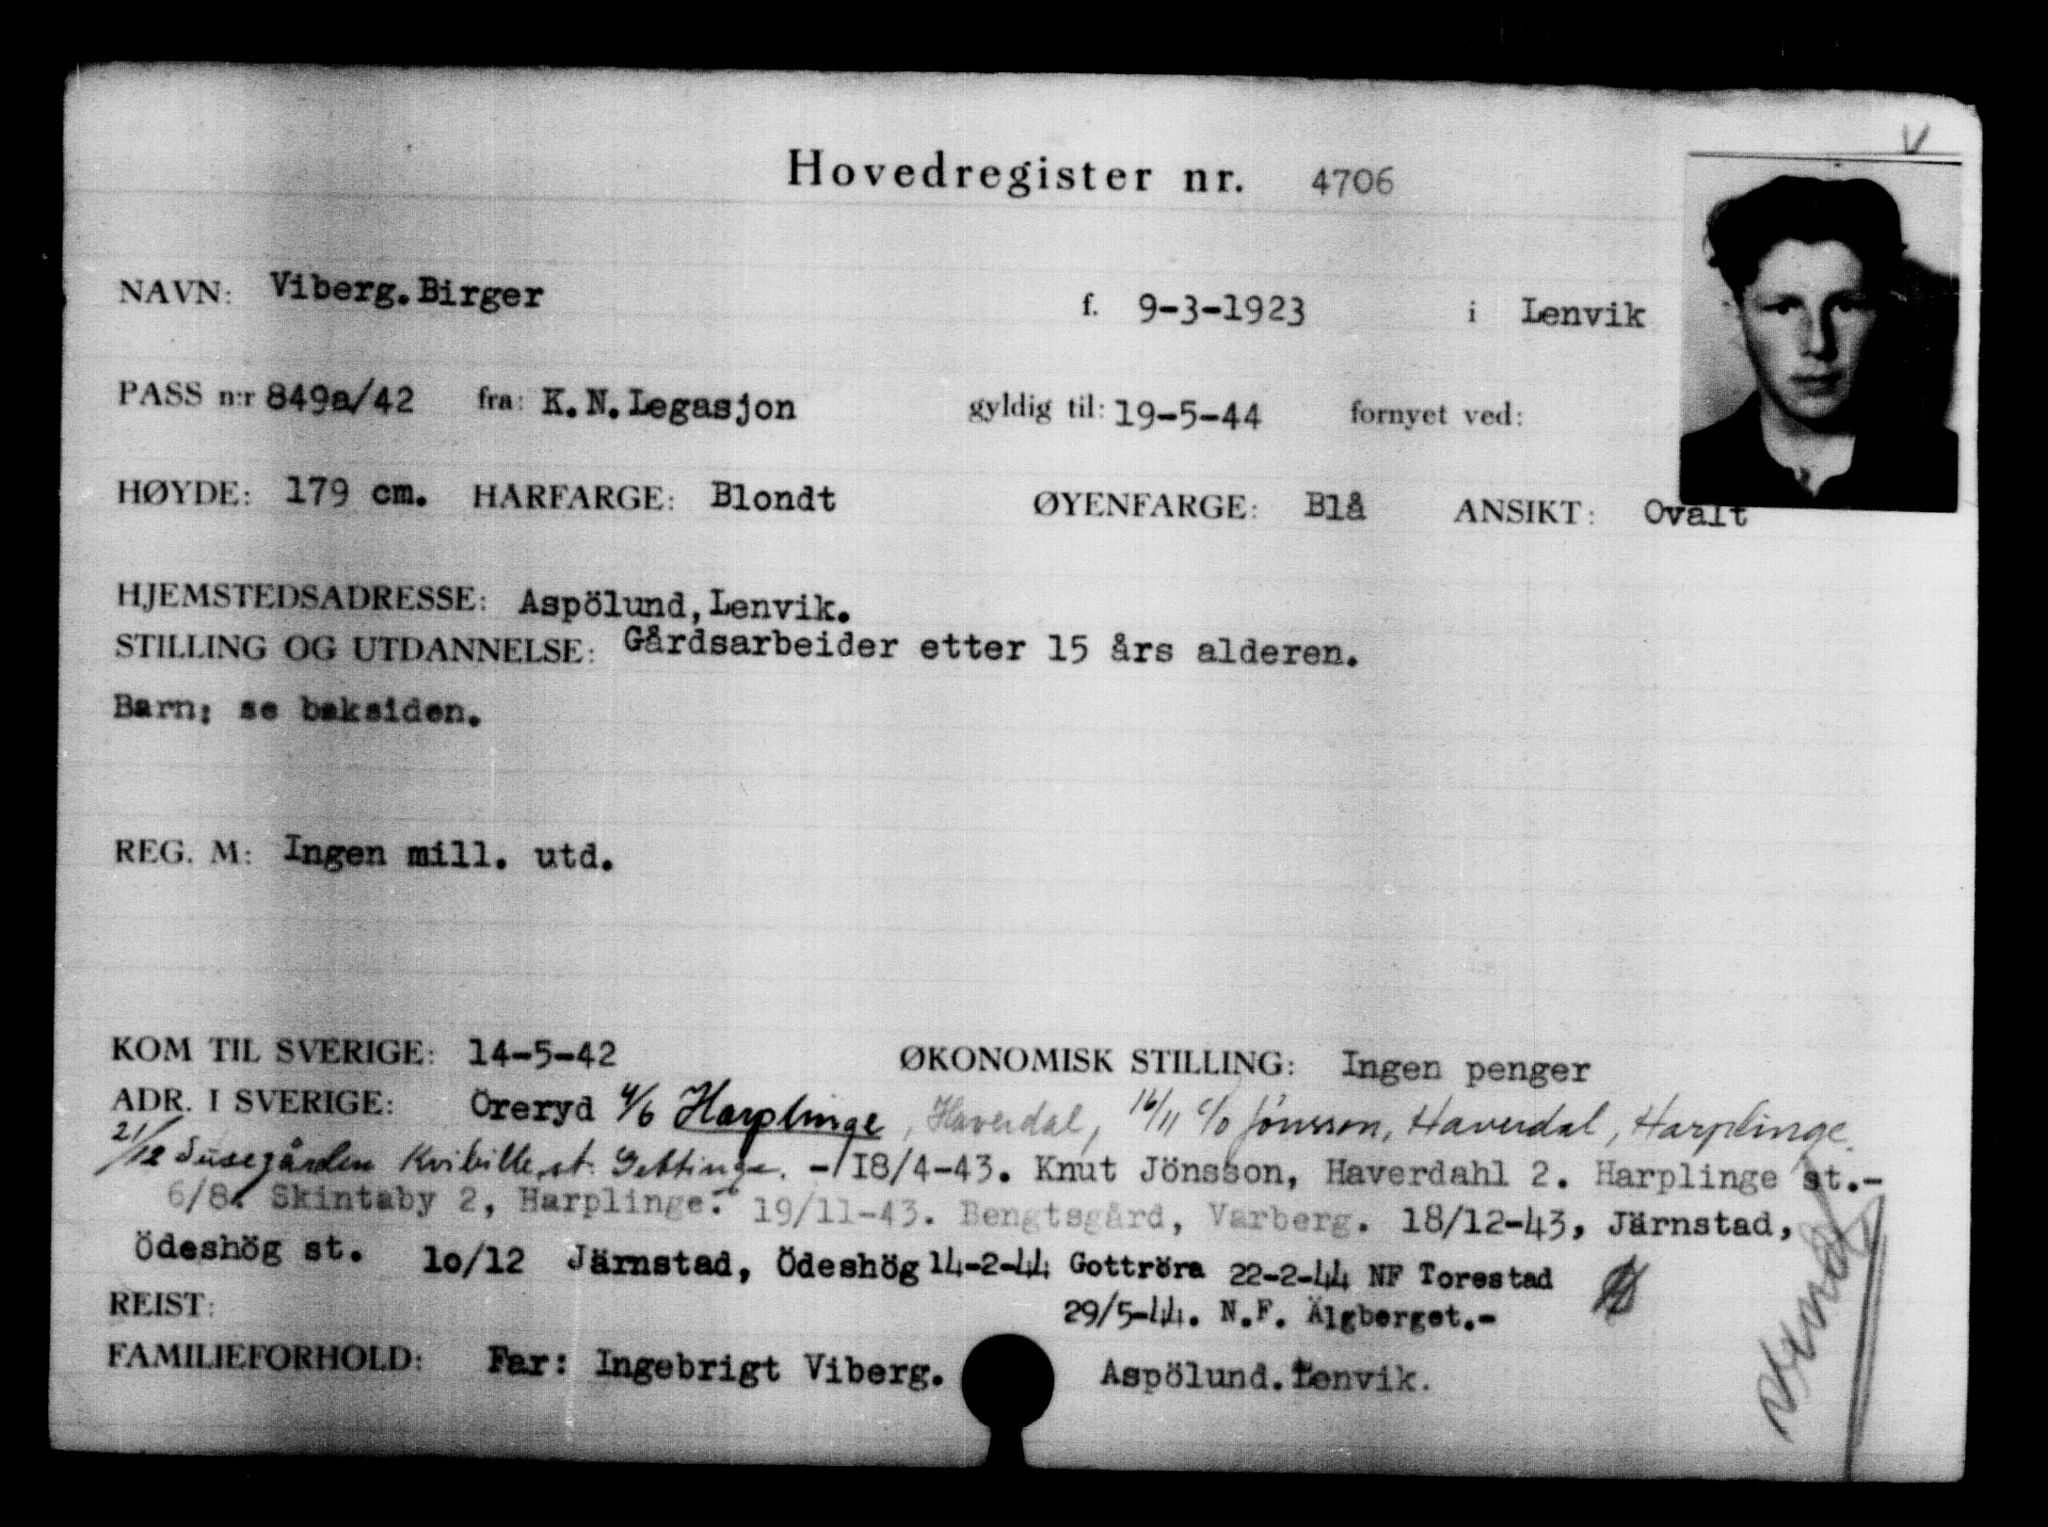 V
Hovedregister nr. 4706
NAVN: Viberg.Birger f. 9-3-1923 i Lenvik
PASS n:r 849a/42 fra: K.N.Legasjon gyldig til: 19-5-44 fornyet ved:
HØYDE: 179 cm. HARFARGE: Blondt ØYENFARGE: Blå ANSIKT: Ovalt
HJEMSTEDSADRESSE: Aspölund,Lenvik.
STILLING OG UTDANNELSE: Gårdsarbeider etter 15 års alderen.
Barn: se baksiden.
REG. M: Ingen mill. utd.
KOM TIL SVERIGE: 14-5-42 ØKONOMISK STILLING: Ingen penger
ADR. I SVERIGE: Öreryd 4/6 Harplinge, Haverdal, 16/11 c/o Jönsson, Haverdal, Harplinge.
21/12 Susegården Kvibille, st. Gettinge. - 18/4-43. Knut Jönsson, Haverdahl 2. Harplinge st.-
6/8. Skintaby 2, Harplinge. 19/11-43. Bengtsgård, Varberg. 18/12-43, Järnstad,
Ödeshög st. 10/12 Järnstad, Ödeshög 14-2-44 Gottröra 22-2-44 NF Torestad
REIST: 29/5-44. N.F. Älgberget.-
FAMILIEFORHOLD: Far: Ingebrigt Viberg. Aspölund.Lenvik.